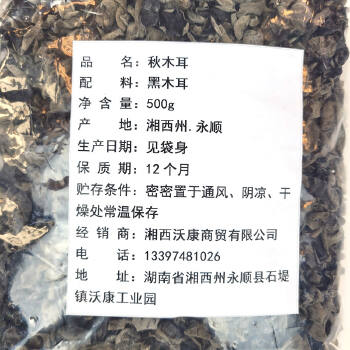 品 名：秋木耳
配 料：黑木耳
净 含 量：500g
产 地：湘西州.永顺
生产日期：见袋身
保 质 期：12个月
贮存条件：密密置于通风、阴凉、干
燥处常温保存
经 销 商：湘西沃康商贸有限公司
电 话：13397481026
地 址：湖南省湘西州永顺县石堤
镇沃康工业园